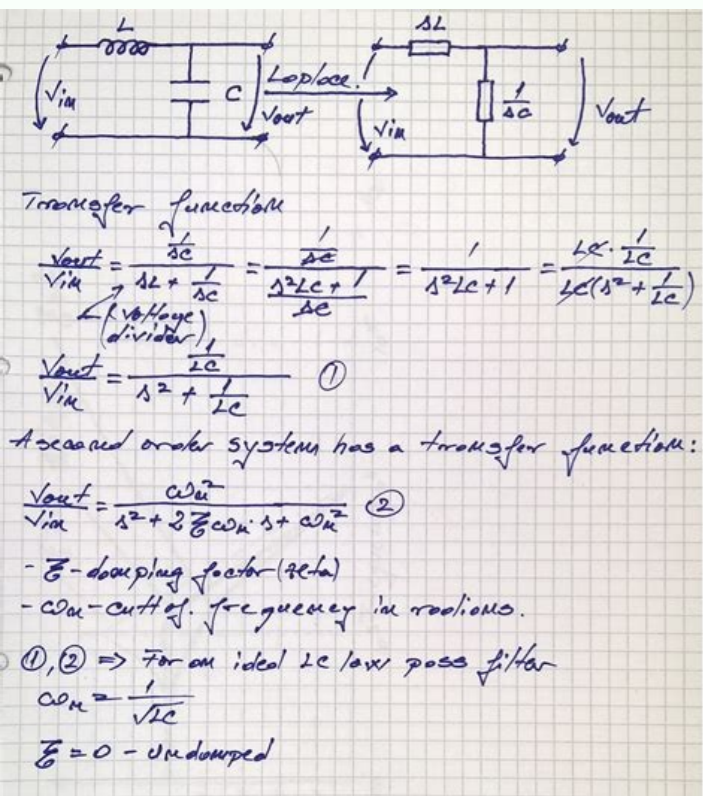 L
Vin
C
Vout
Laplace
sL
1/sC
Vin
Vout
Transfer function
Vout/Vin = (1/sC)/(sL + 1/sC) = (1/sC)/((s²LC + 1)/sC) = 1/(s²LC + 1) = (LC · 1/LC)/(LC(s² + 1/LC))
(voltage
divider)
Vout/Vin = (1/LC)/(s² + 1/LC) ①
A second order system has a transfer function:
Vout/Vin = ωn²/(s² + 2ξωn·s + ωn²) ②
- ξ - damping factor (zeta)
- ωn - cuttof. frequency in radians.
①, ② => For an ideal LC low pass filter
ωn = 1/√LC
ξ = 0 - Undamped